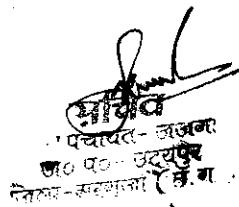 सचिव
पंचायत- जजगा
ज० प०- उदयपुर
जिला- सरगुजा (छ.ग.